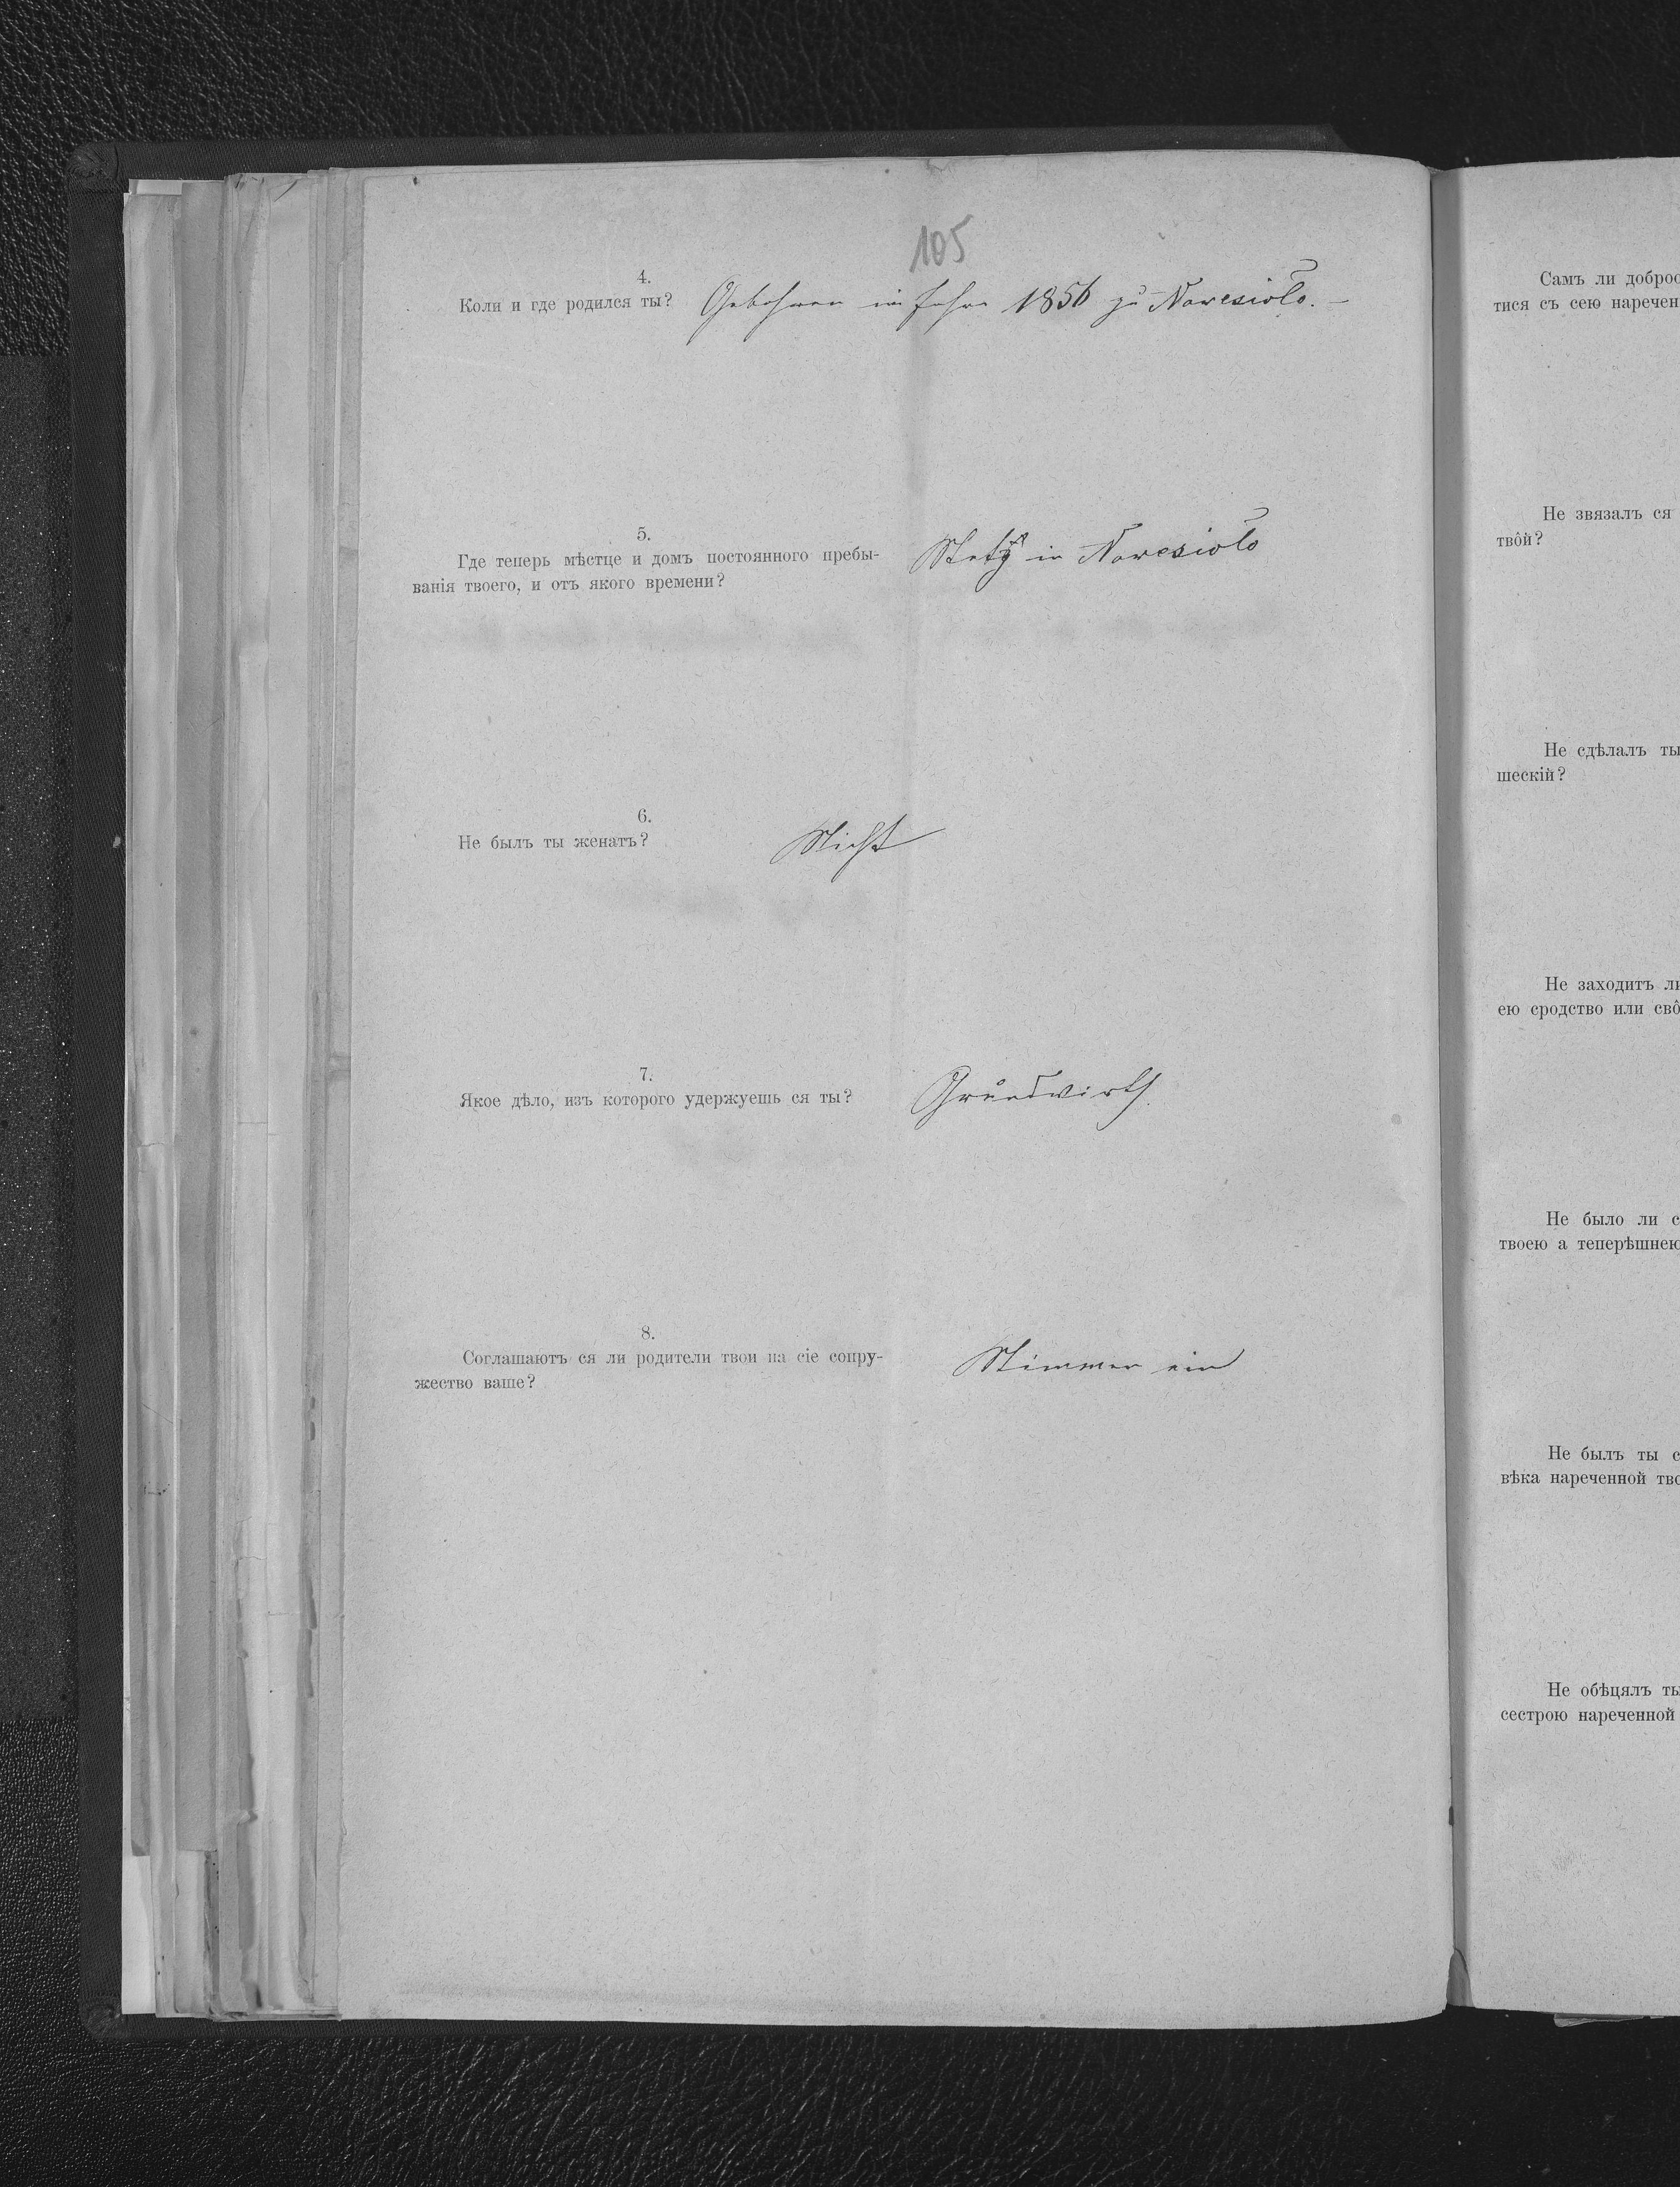 105
4.
Коли и где родился ты? Gebohren im Jahre 1856 zu Nowesioło. –
5.
Где теперь мѣстце и домъ постоянного пребы-
ванія твоего, и отъ якого времени?
Stets in Nowesioło
6.
Не былъ ты женатъ? Nicht
7.
Якое дѣло, изъ которого удержуешь ся ты? Grundwirth.
8.
Соглашаютъ ся ли родители твои на сіе сопру-
жество ваше?
Stimmen ein
Самъ ли доброс
тися съ сею наречен
Не звязалъ ся
твôй?
Не сдѣлалъ ты
шескій?
Не заходитъ ли
ею сродство или свô
Не было ли с
твоею а теперѣшнею
Не былъ ты с
вѣка нареченной тво
Не обѣцялъ ты
сестрою нареченной